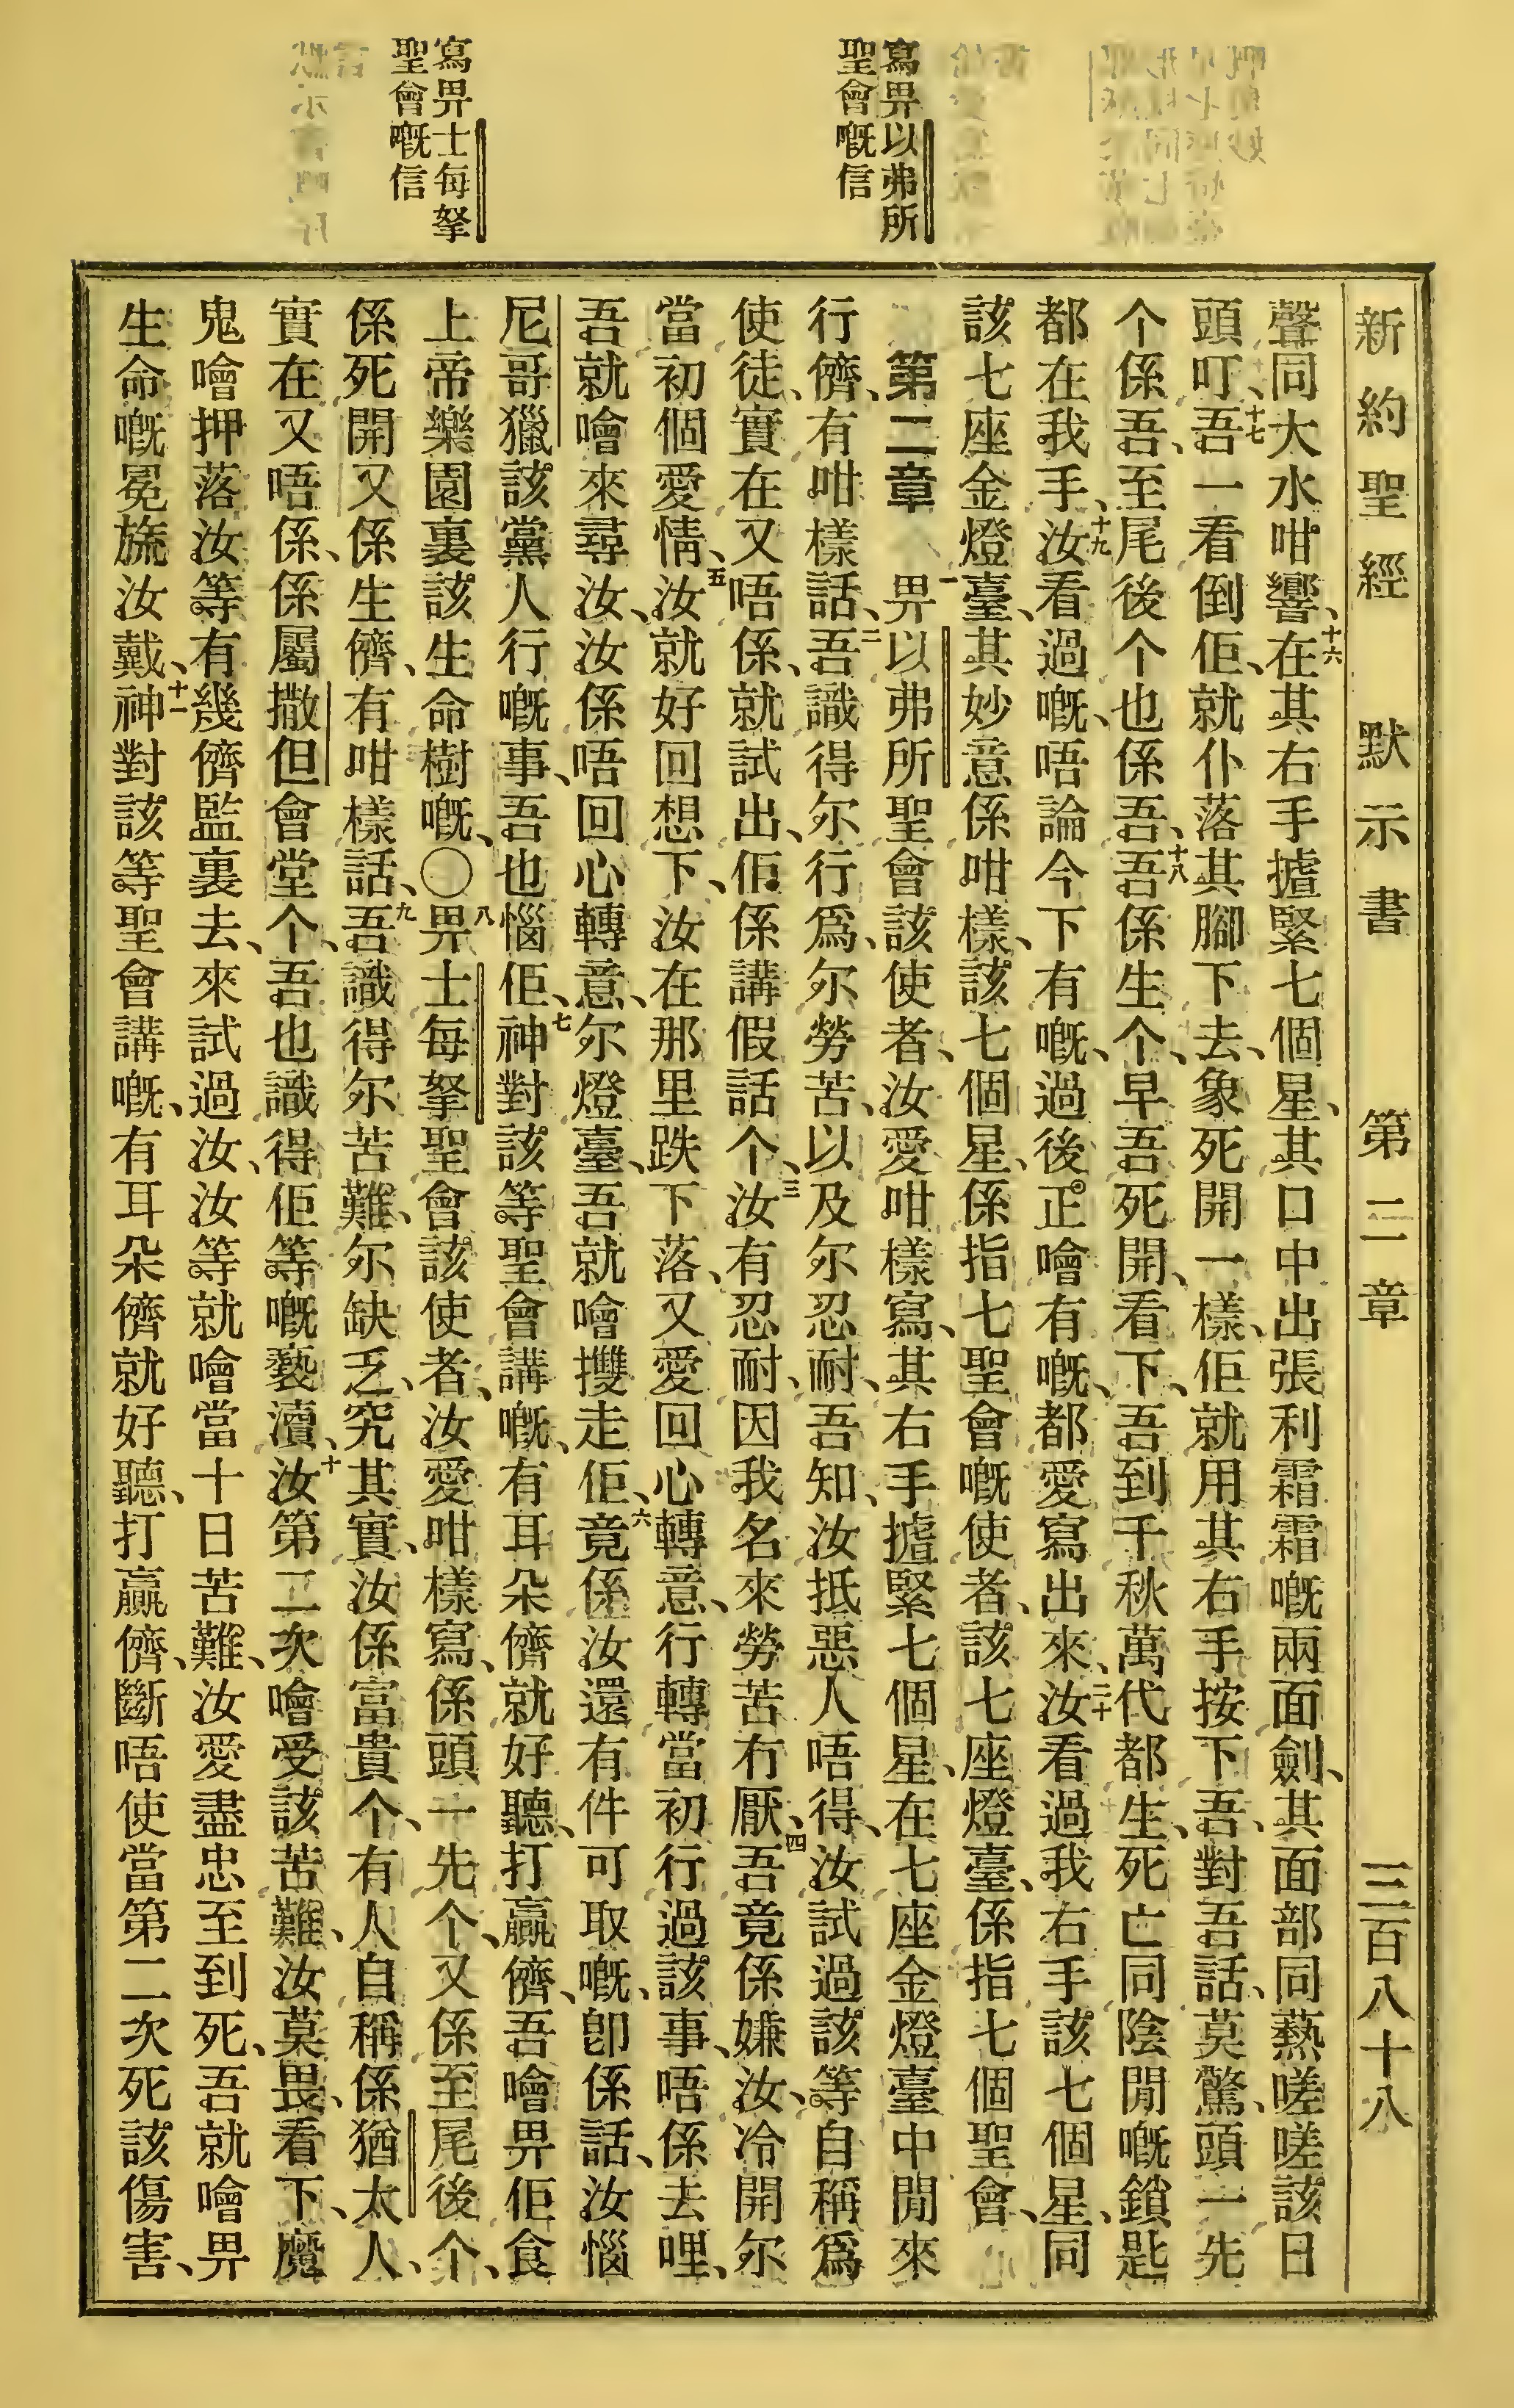 寫畀以弗所
聖會嘅信
寫畀士每拏
聖會嘅信
新約聖經 默示書 第二章 三百八十八
聲同大水咁響、十六在其右手揸緊七個星、其口中出張利霜霜嘅兩面劍、其面部同熱嗟嗟該日
頭叮、十七吾一看倒佢、就仆落其腳下去、象死開一樣、佢就用其右手按下吾、對吾話、莫驚、頭一先
个係吾、至尾後个也係吾、十八吾係生个、早吾死開、看下、吾到千秋萬代都生、死亡同陰閒嘅鎖匙
都在我手、十九汝看過嘅、唔論今下有嘅、過後正噲有嘅、都愛寫出來、二十汝看過我右手該七個星、同
該七座金燈臺、其妙意係咁樣、該七個星、係指七聖會嘅使者、該七座燈臺、係指七個聖會、
第二章 一畀以弗所聖會該使者、汝愛咁樣寫、其右手揸緊七個星、在七座金燈臺中閒來
行儕、有咁樣話、二吾識得尔行爲、尔勞苦、以及尔忍耐、吾知、汝抵惡人唔得、汝試過該等自稱爲
使徒、實在又唔係、就試出、佢係講假話个、三汝有忍耐、因我名來勞苦冇厭、四吾竟係嫌汝、冷開尔
當初個愛情、五汝就好回想下、汝在那里跌下落、又愛回心轉意、行轉當初行過該事、唔係去哩、
吾就噲來尋汝、汝係唔回心轉意、尔燈臺、吾就噲㩳走佢、六竟係汝還有件可取嘅、卽係話、汝惱
尼哥獵該黨人行嘅事、吾也惱佢、七神對該等聖會講嘅、有耳朵儕就好聽、打贏儕、吾噲畀佢食
上帝樂園裏該生命樹嘅、〇八畀士每拏聖會該使者、汝愛咁樣寫、係頭一先个、又係至尾後个、
係死開又係生儕、有咁樣話、九吾識得尔苦難、尔缺乏、究其實、汝係富貴个、有人自稱係猶太人、
實在又唔係、係屬撒但會堂个、吾也識得佢等嘅褻瀆、十汝第二次噲受該苦難、汝莫畏、看下、魔
鬼噲押落汝等有幾儕監裏去、來試過汝、汝等就噲當十日苦難、汝愛盡忠至到死、吾就噲畀
生命嘅冕旒汝戴、十一神對該等聖會講嘅、有耳朵儕就好聽、打贏儕、斷唔使當第二次死該傷害、